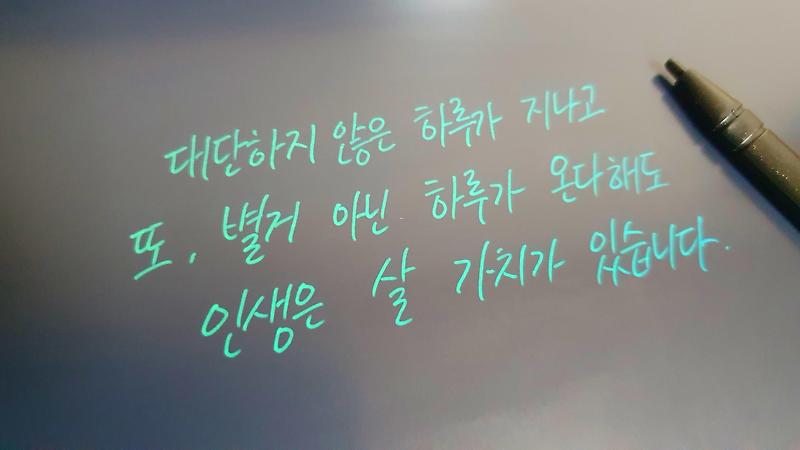 대단하지 않은 하루가 지나고
또, 별거 아닌 하루가 온다해도
인생은 살 가치가 있습니다.